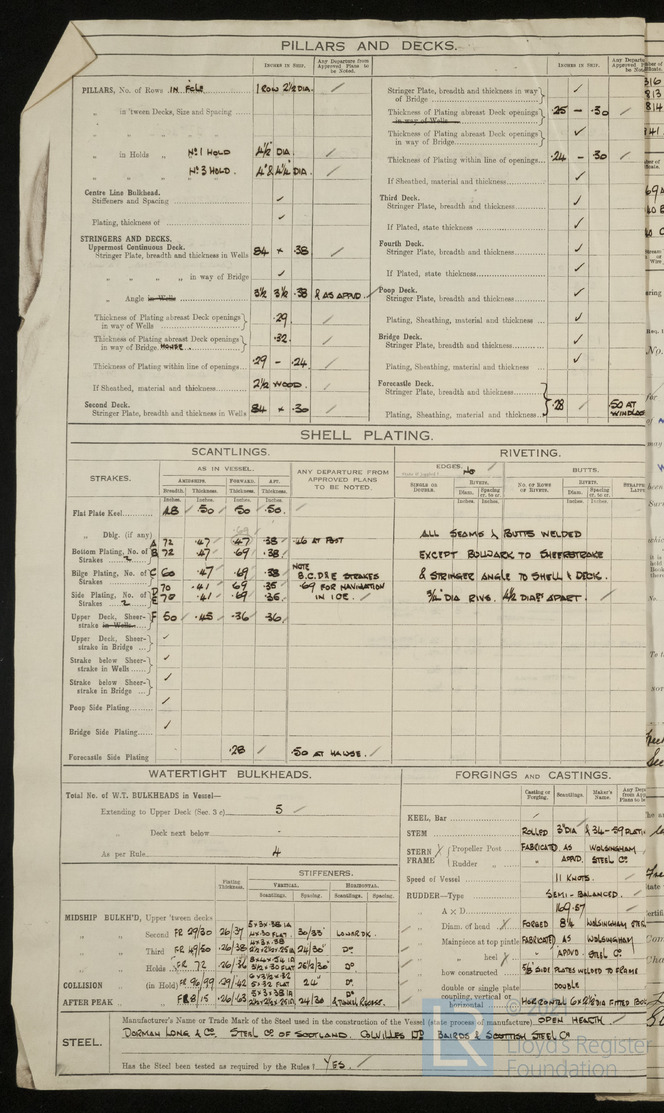 PILLARS AND DECKS.
INCHES IN SHIP.
Any Departure from Approved Plans to be Noted.
PILLARS, No. of Rows IN FCLE 1 ROW 2½ DIA.
" in 'tween Decks, Size and Spacing
" in Holds Nº1 HOLD 4½" DIA
" " Nº 3 HOLD. 4" & 4¼" DIA.
Centre Line Bulkhead.
Stiffeners and Spacing
Plating, thickness of
STRINGERS AND DECKS.
Uppermost Continuous Deck.
Stringer Plate, breadth and thickness in Wells 84 × .38
" " " " in way of Bridge
" Angle in Wells 3½ 3½ .38 & AS APPVD.
Thickness of Plating abreast Deck openings in way of Wells .29
Thickness of Plating abreast Deck openings in way of Bridge HOUSE .32
Thickness of Plating within line of openings .29 - .24
If Sheathed, material and thickness 2½ WOOD.
Second Deck.
Stringer Plate, breadth and thickness in Wells 84 × .30
INCHES IN SHIP.
Stringer Plate, breadth and thickness in way of Bridge
Thickness of Plating abreast Deck openings in way of Wells .25 - .30
Thickness of Plating abreast Deck openings in way of Bridge
Thickness of Plating within line of openings .24 - .30
If Sheathed, material and thickness
Third Deck.
Stringer Plate, breadth and thickness
If Plated, state thickness
Fourth Deck.
Stringer Plate, breadth and thickness
If Plated, state thickness
Poop Deck.
Stringer Plate, breadth and thickness
Plating, Sheathing, material and thickness
Bridge Deck.
Stringer Plate, breadth and thickness
Plating, Sheathing, material and thickness
Forecastle Deck.
Stringer Plate, breadth and thickness
Plating, Sheathing, material and thickness .28 .50 AT WINDLASS
SHELL PLATING.
SCANTLINGS. RIVETING.
STRAKES.
AS IN VESSEL.
AMIDSHIPS. FORWARD. AFT.
Breadth. Thickness. Thickness. Thickness.
Inches. Inches. Inches. Inches.
ANY DEPARTURE FROM APPROVED PLANS TO BE NOTED.
EDGES. No
BUTTS.
SINGLE OR DOUBLE.
RIVETS.
Diam. Spacing cr. to cr.
No. OF ROWS OF RIVETS.
RIVETS.
Diam. Spacing cr. to cr.
Flat Plate Keel 48 .50 .50 .50
" Dblg. (if any)
Bottom Plating, No. of Strakes 2
A 72 .47 .47 .38 .46 AT POST
B 72 .47 .69 .38
Bilge Plating, No. of Strakes
C 60 .47 .69 .38
Side Plating, No. of Strakes 2
D 70 .41 .69 .35
E 70 .41 .69 .35
NOTE B.C.D & E STRAKES .69 FOR NAVIGATION IN ICE.
Upper Deck, Sheerstrake in Wells F 50 .45 .36 .36
ALL SEAMS & BUTTS WELDED
EXCEPT BULWARK TO SHEERSTRAKE
& STRINGER ANGLE TO SHELL & DECK.
¾" DIA RIVS. 4½ DIAS APART.
Upper Deck, Sheerstrake in Bridge
Strake below Sheerstrake in Wells
Strake below Sheerstrake in Bridge
Poop Side Plating
Bridge Side Plating
Forecastle Side Plating .28 .50 AT HAWSE.
WATERTIGHT BULKHEADS.
Total No. of W.T. BULKHEADS in Vessel—
Extending to Upper Deck (Sec. 3 c) 5
" Deck next below -
As per Rule 4
Plating Thickness.
STIFFENERS.
VERTICAL. HORIZONTAL.
Scantlings. Spacing. Scantlings. Spacing.
MIDSHIP BULKH'D, Upper 'tween decks
" Second " FR 29/30 .26/.37 30/33" LOWER DK.
" Third " FR 49/50 .26/.38 24/30" Dº
" Holds FR 72 26½/30" Dº
COLLISION " (in Hold) FR 96/99 .29/.42 24" Dº
AFTER PEAK " FR 8/15 .26/.63 24/30
FORGINGS AND CASTINGS.
Casting or Forging. Scantlings. Maker's Name.
KEEL, Bar
STEM ROLLED 3" DIA & .34-.59 PLATE
STERN FRAME Propeller Post FABRICATED AS WOLSINGHAM
Rudder " " APPVD. STEEL Cº
Speed of Vessel 11 KNOTS.
RUDDER—Type SEMI-BALANCED.
" A × D 169.57
" Diam. of head FORGED 8¼ WOLSINGHAM STEEL
" Mainpiece at top pintle FABRICATED AS WOLSINGHAM
" " heel " APPVD STEEL Cº.
" how constructed ⅝" SIDE PLATES WELDED TO FRAME
" double or single plate DOUBLE
" coupling, vertical or horizontal HORIZONTAL 6 × 2⅝ DIA FITTED BOLTS
STEEL.
Manufacturer's Name or Trade Mark of the Steel used in the construction of the Vessel (state process of manufacture) OPEN HEARTH
DORMAN LONG & Cº. STEEL Cº OF SCOTLAND. COLVILLES LTD BAIRDS & SCOTTISH STEEL Cº
Has the Steel been tested as required by the Rules? YES.
Lloyd's Register
Foundation